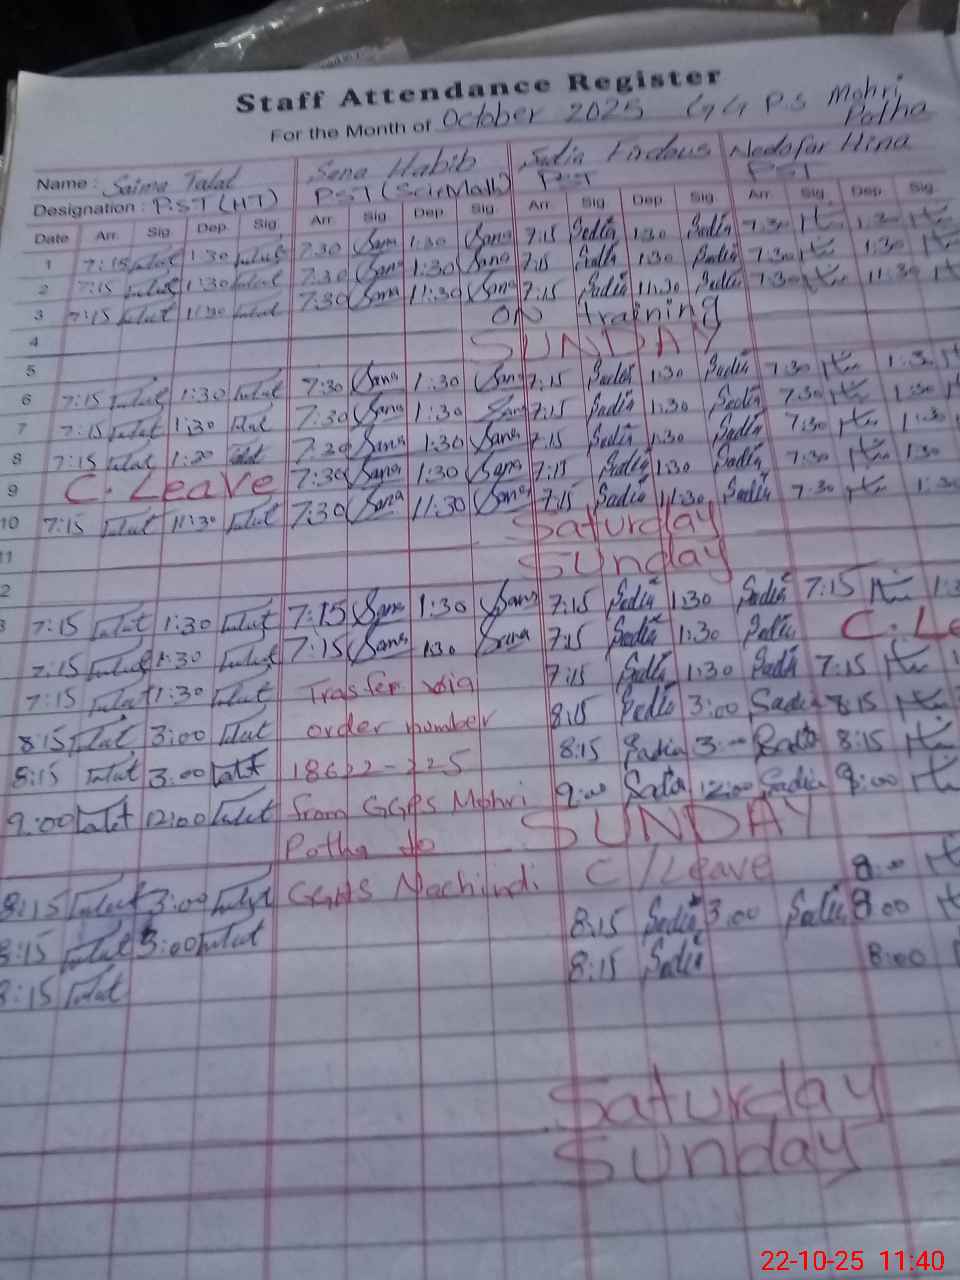 Staff Attendance Register
For the Month of October 2025 GGPS Mohri Potha
Name : Saima Talat Sana Habib Sadia Firdous Hina
Designation : PST (HT) PST (Sci-Math) PST PST
Date Arr. Sig. Dep. Sig. Arr. Sig. Dep. Sig. Arr. Sig. Dep. Sig. Arr. Sig. Dep. Sig.
1 7:15 Talat 1:30 Talat 7:30 Sana 1:30 Sana 7:15 Sadia 1:30 Sadia 7:30 1:30
2 7:15 Talat 1:30 Talat 7:30 Sana 1:30 Sana 7:15 Sadia 1:30 Sadia 7:30 1:30
3 7:15 Talat 11:30 Talat 7:30 Sana 11:30 Sana 7:15 Sadia 11:30 Sadia 7:30 11:30
4 ON Training
5 SUNDAY
6 7:15 Talat 1:30 Talat 7:30 Sana 1:30 Sana 7:15 Sadia 1:30 Sadia 7:30 1:30
7 7:15 Talat 1:30 Talat 7:30 Sana 1:30 Sana 7:15 Sadia 1:30 Sadia 7:30 1:30
8 7:15 Talat 1:30 Talat 7:30 Sana 1:30 Sana 7:15 Sadia 1:30 Sadia 7:30 1:30
9 C. Leave 7:30 Sana 1:30 Sana 7:15 Sadia 1:30 Sadia 7:30 1:30
10 7:15 Talat 11:30 Talat 7:30 Sana 11:30 Sana 7:15 Sadia 11:30 Sadia 7:30
11 Saturday
2 Sunday
3 7:15 Talat 1:30 Talat 7:15 Sana 1:30 Sana 7:15 Sadia 1:30 Sadia 7:15
7:15 Talat 1:30 Talat 7:15 Sana 1:30 Sana 7:15 Sadia 1:30 Sadia C. Le
7:15 Talat 1:30 Talat Trasfer via 7:15 Sadia 1:30 Sadia 7:15
8:15 Talat 3:00 Talat order number 8:15 Sadia 3:00 Sadia 8:15
8:15 Talat 3:00 Talat 8:15 Sadia 3:00 Sadia 8:15
9:00 Talat 12:00 Talat from GGPS Mohri 9:00 Sadia 12:00 Sadia 9:00
Potha to SUNDAY
8:15 Talat 3:00 Talat GGHS Nachindi C/Leave 8:00
8:15 Talat 3:00 Talat 8:15 Sadia 3:00 Sadia 8:00
8:15 Talat 8:15 Sadia 8:00
Saturday
Sunday
22-10-25 11:40